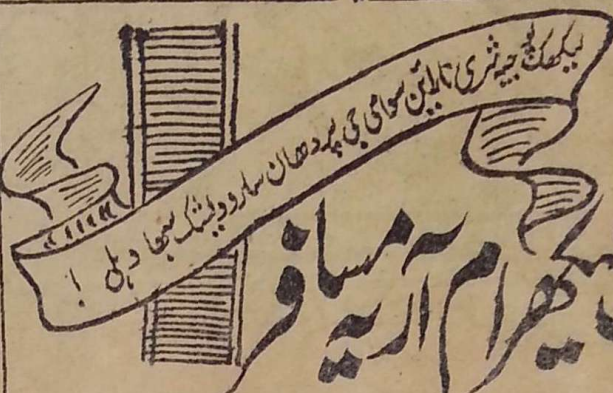 لیکھک پوجیہ شری نارائن سوامی جی پردھان سارودیشک سبھا دہلی !
لیکھرام آریہ مسافر